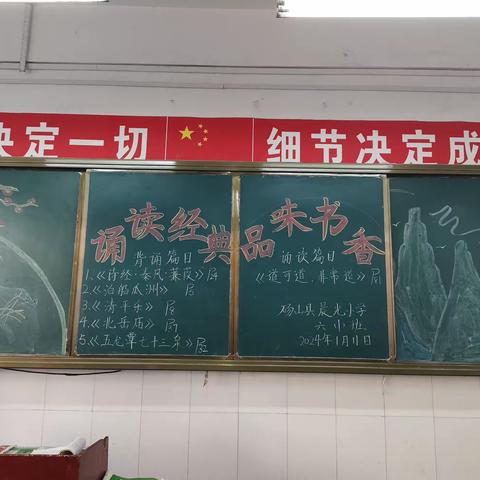 决定一切
细节决定成
诵读经典品味书香
背诵篇目
1.《诗经·秦风·蒹葭》P4
2.《泊船瓜洲》P
3.《清平乐》P
4.《北岳庙》P
5.《五七章七十三章》P
诵读篇目
《道可道,非常道》P
砀山县晨光小学
六(1)班
2024年1月11日